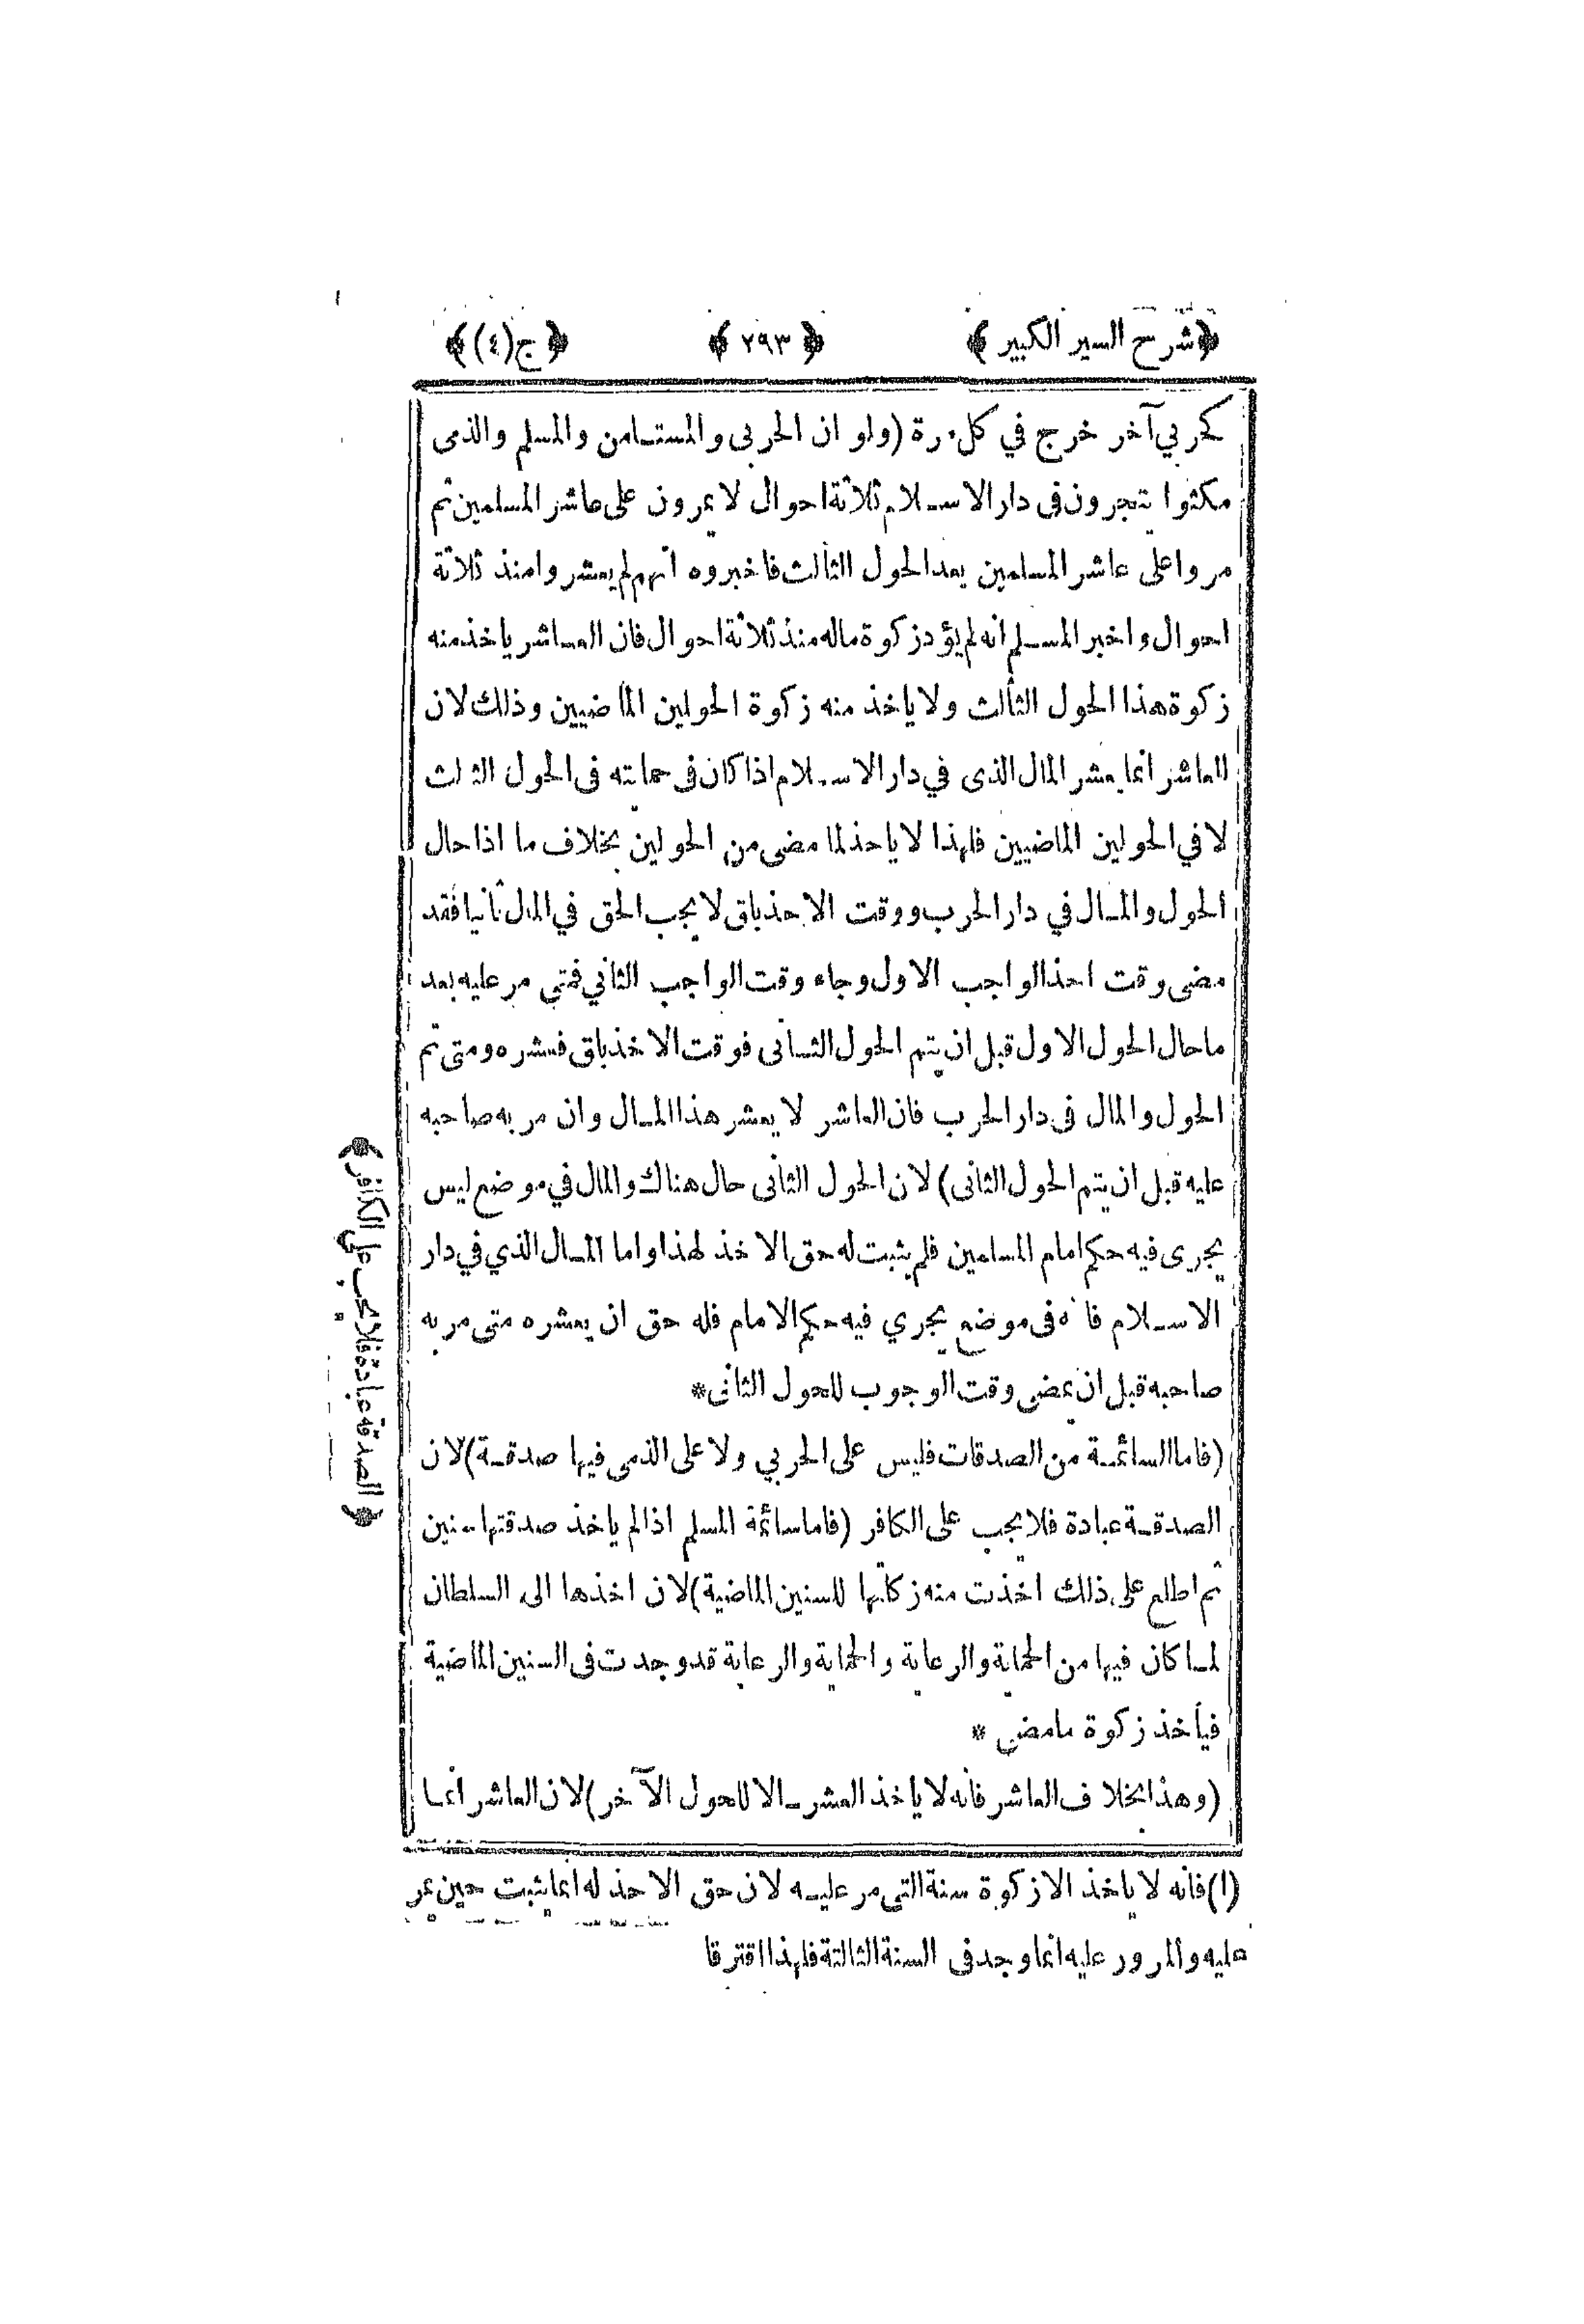 ﴿شرح السير الكبير﴾ ﴿٢٩٣﴾ ﴿ج(٤)﴾
كحربي آخر خرج في كل مرة (ولو ان الحربى والمستامن والمسلم والذمى
مكثوا يتجرون فى دار الاسلام ثلاثة احوال لا يمرون على عاشر المسلمين ثم
مروا على عاشر المسلمين بعد الحول الثالث فاخبروه انهم لم يعشروا منذ ثلاثة
احوال واخبر المسلم انه لم يؤد زكوة ماله منذ ثلاثة احوال فان العاشر ياخذ منه
زكوة هذا الحول الثالث ولا ياخذ منه زكوة الحولين الماضيين وذلك لان
العاشر انما يعشر المال الذى في دار الاسلام اذا كان فى حمايته فى الحول الثالث
لا في الحولين الماضيين فلهذا لا ياخذ لما مضى من الحولين بخلاف ما اذا حال
الحول والمال في دار الحرب ووقت الاخذ باق لا يجب الحق في المال ثانيا فقد
مضى وقت اخذ الواجب الاول وجاء وقت الواجب الثاني فمتى مر عليه بعد
ما حال الحول الاول قبل ان يتم الحول الثانى فوقت الاخذ باق فعشره ومتى تم
الحول والمال فى دار الحرب فان العاشر لا يعشر هذا المال وان مر به صاحبه
عليه قبل ان يتم الحول الثانى) لان الحول الثانى حال هناك والمال في موضع ليس
يجرى فيه حكم امام المسلمين فلم يثبت له حق الاخذ لهذا واما المال الذي في دار
الاسلام فانه فى موضع يجري فيه حكم الامام فله حق ان يعشره متى مر به
صاحبه قبل ان يمضى وقت الوجوب للحول الثانى*
(فاما السائمة من الصدقات فليس على الحربي ولا على الذمى فيها صدقة) لان
الصدقة عبادة فلا يجب على الكافر (فاما سائمة المسلم اذا لم ياخذ صدقتها سنين
ثم اطلع على ذلك اخذت منه زكاتها للسنين الماضية) لان اخذها الى السلطان
لما كان فيها من الحماية والرعاية والحماية والرعاية قد وجدت فى السنين الماضية
فيأخذ زكوة ما مضى *
(وهذا بخلاف العاشر فانه لا ياخذ العشر الا للحول الآخر) لان العاشر انما
(١) فانه لا ياخذ الا زكوة سنة التى مر عليه لان حق الاخذ له انما يثبت حين يمر
عليه والمرور عليه انما وجد فى السنة الثالثة فلهذا افترقا
﴿الصدقة عبادة فلا يجب على الكافر﴾